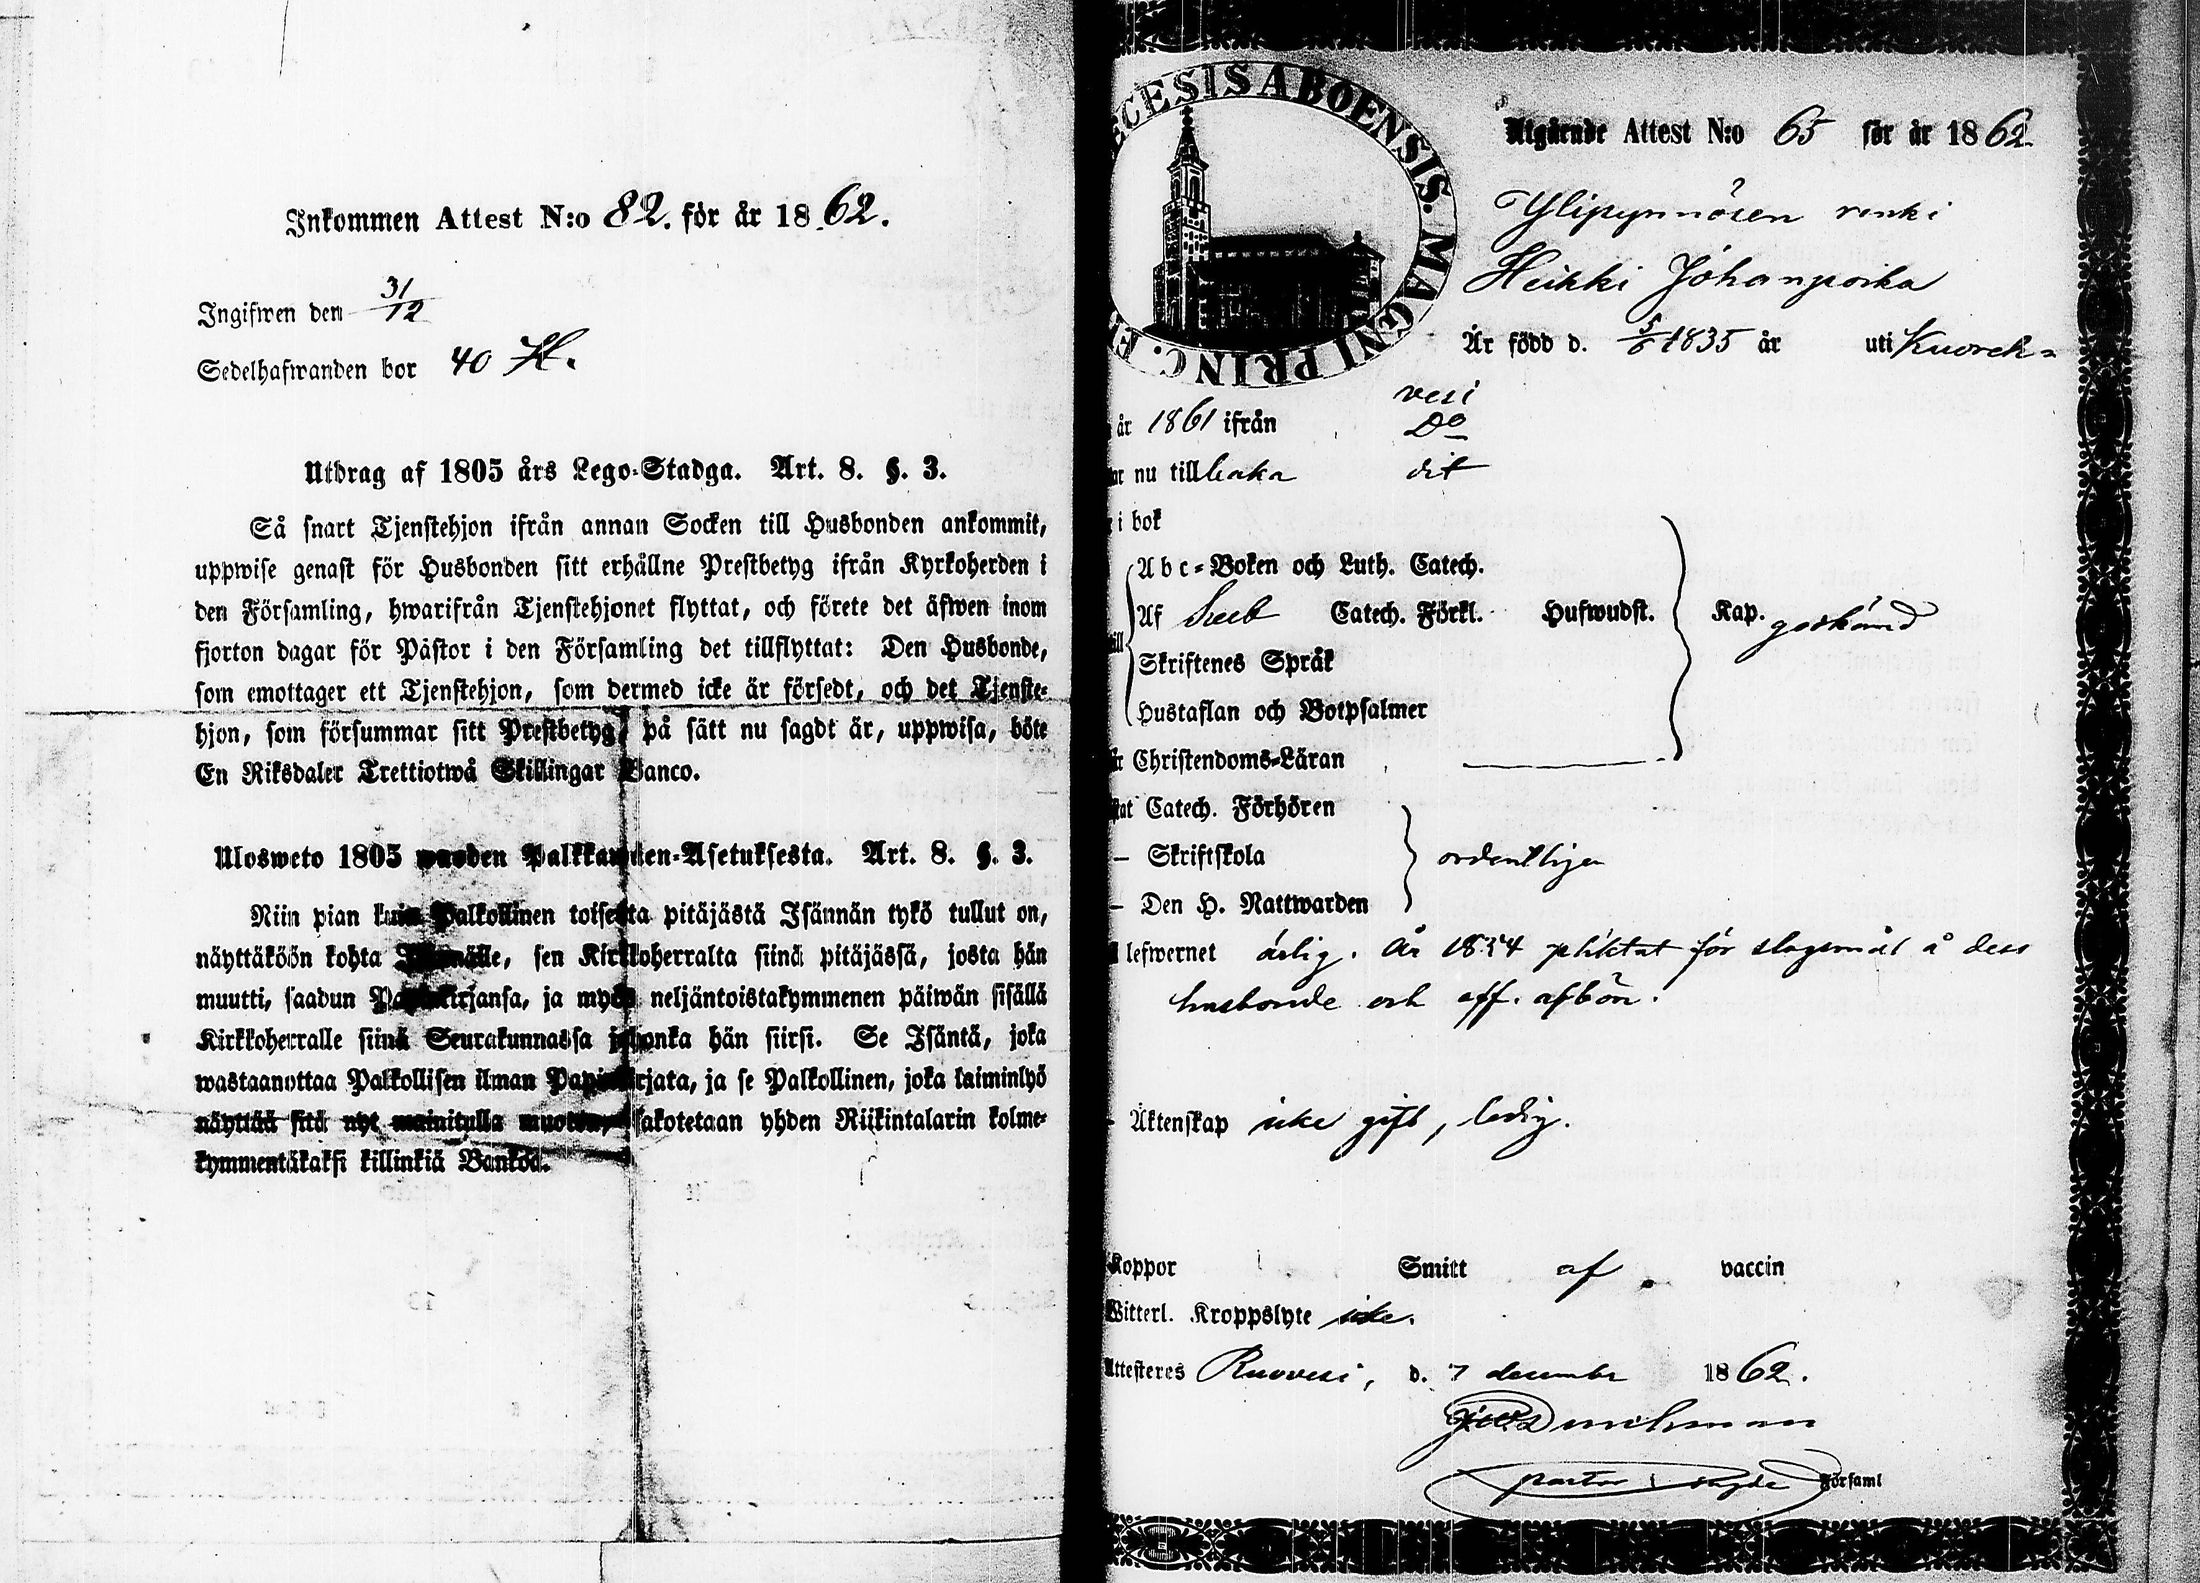 Inkommen Attest N:o 82. för år 1862.
Ingifwen den 31/12
Sedelhafwanden bor 40 H.
Utdrag af 1805 års Lego-Stadga. Art. 8. §. 3.
Så snart Tjenstehjon ifrån annan Socken till Husbonden ankommit,
uppwise genast för Husbonden sitt erhållne Prestbetyg ifrån Kyrkoherden i
den Församling, hwarifrån Tjenstehjonet flyttat, och förete det äfwen inom
fjorton dagar för Pastor i den Församling det tillflyttat: Den Husbonde,
som emottager ett Tjenstehjon, som dermed icke är försedt, och det Tjenste-
hjon, som försummar sitt Prestbetyg, på sätt nu sagdt är, uppwisa, böte
En Riksdaler Trettiotwå Skillingar Banco.
Ulosweto 1805 wuoden Palkkawäen-Asetuksesta. Art. 8. §. 3.
Niin pian kuin Palkollinen toisesta pitäjästä Isännän tykö tullut on,
näyttäköön kohta Isännälle, sen Kirkkoherralta siinä pitäjässä, josta hän
muutti, saadun Papinkirjansa, ja myös neljäntoistakymmenen päiwän sisällä
Kirkkoherralle siinä Seurakunnassa johonka hän siirsi. Se Isäntä, joka
wastaanottaa Palkollisen ilman Papinkirjata, ja se Palkollinen, joka laiminlyö
näyttää sitä nyt mainitulla muoton, sakotetaan yhden Riikintalarin kolme-
kymmentäkaksi killinkiä Bankoa.
ECESIS ABOENSIS. MAGNI PRINC. F
Utgående Attest N:o 65 för år 1862.
Ylipynnösen renki
Heikki Johanpoika
Är född d. 5/6 1835 år uti Kuoreh-
vesi
år 1861 ifrån Do
nu tillbaka dit
i bok
Abc-Boken och Luth. Catech.
Af Sveb Catech. Förkl. Hufwudst. Kap. godkänd
Skriftenes Språk
Hustaflan och Botpsalmer
Christendoms-Läran
Catech. Förhören
— Skriftskola ordentligen
— Den H. Nattwarden
lefwernet ärlig. År 1854 pliktat för slagsmål å dess
husbonde och off. afbön.
Äktenskap icke gift, ledig.
Koppor Smitt af vaccin
Witterl. Kroppslyte icke.
Attesteres Ruovesi, d. 7 december 1862.
pastor i Församl